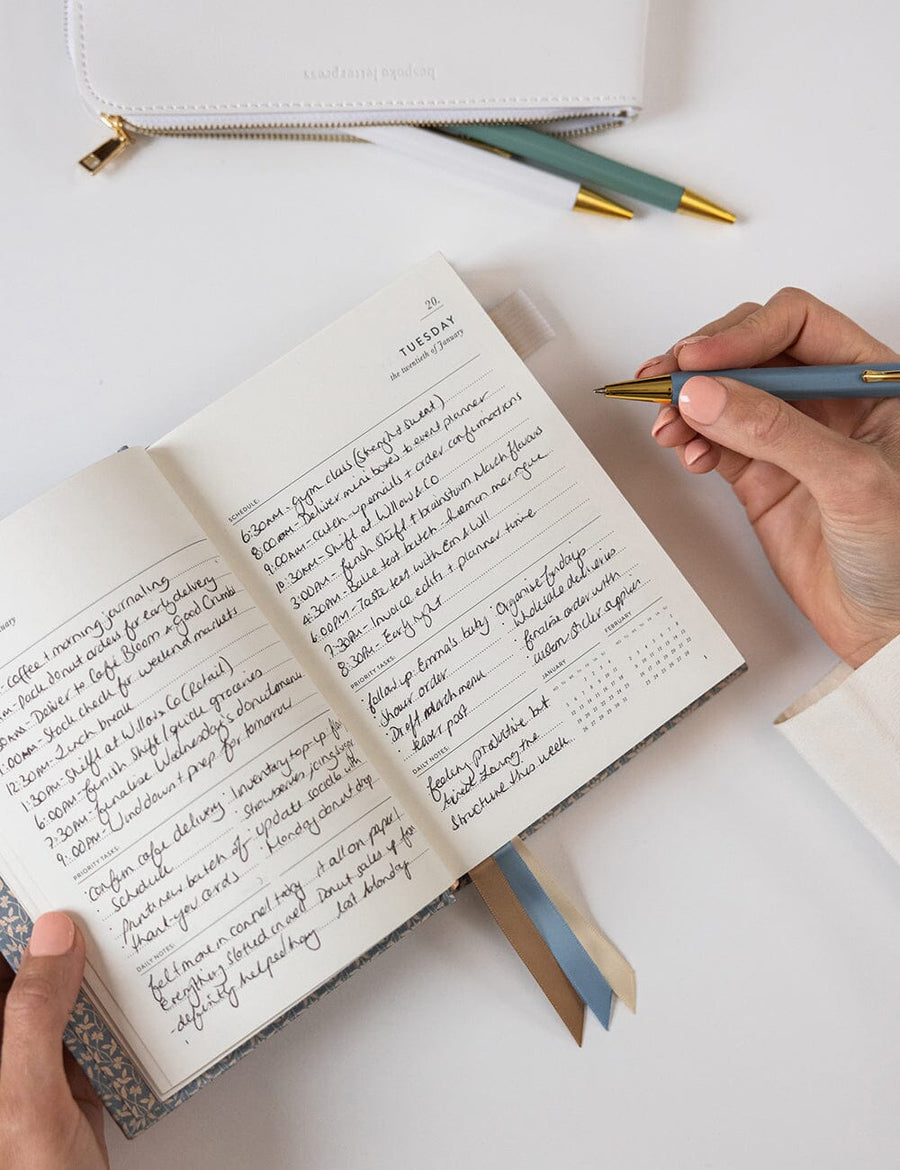 bespoke letterpress
uary
- coffee + morning journaling
AM - Pack donut orders for early delivery
AM - Deliver to Café Bloom + Good Crumb
:00AM - Stock check for weekend markets
12:30PM - Lunch break
1:30PM - Shift at Willow & Co (Retail)
6:00PM - finish shift / quick groceries
7:30PM - finalise Wednesday's donut menu
9:00PM - Wind down + prep for tomorrow
PRIORITY TASKS:
• Confirm cafe delivery
Schedule
• Print new batch of
thank-you cards
• Inventory top-up for
strawberries, icing sugar
• update socials with
Monday donut drop
DAILY NOTES:
felt more in control today it all on paper!
Everything slotted in well. Donut sales up for
- definitely helped having last Monday
20.
TUESDAY
the twentieth of January
SCHEDULE:
6:30AM - Gym class (Strength + sweat)
8:00AM - Deliver mini boxes to event planner
9:00AM - Catch-up emails + order confirmations
10:30AM - Shift at Willow & Co
3:00PM - finish shift + brainstorm March flavours
4:30PM - Bake test batch - lemon meringue
6:00PM - Taste test with Em & Will
7:30PM - Invoice edits + planner time
8:30PM - Early night
PRIORITY TASKS:
• follow up Emma's baby
shower order
• Draft march menu
• teaser post
• Organise fundays
• Wholesale deliveries
• finalise order with
custom sticker supplier
DAILY NOTES:
feeling productive but
tired. Loving the
structure this week.
JANUARY
FEBRUARY